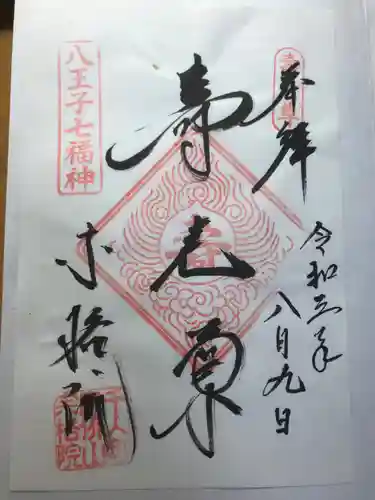 奉拝
令和三年
八月九日
寿老尊
寿
八王子七福神
宗格院